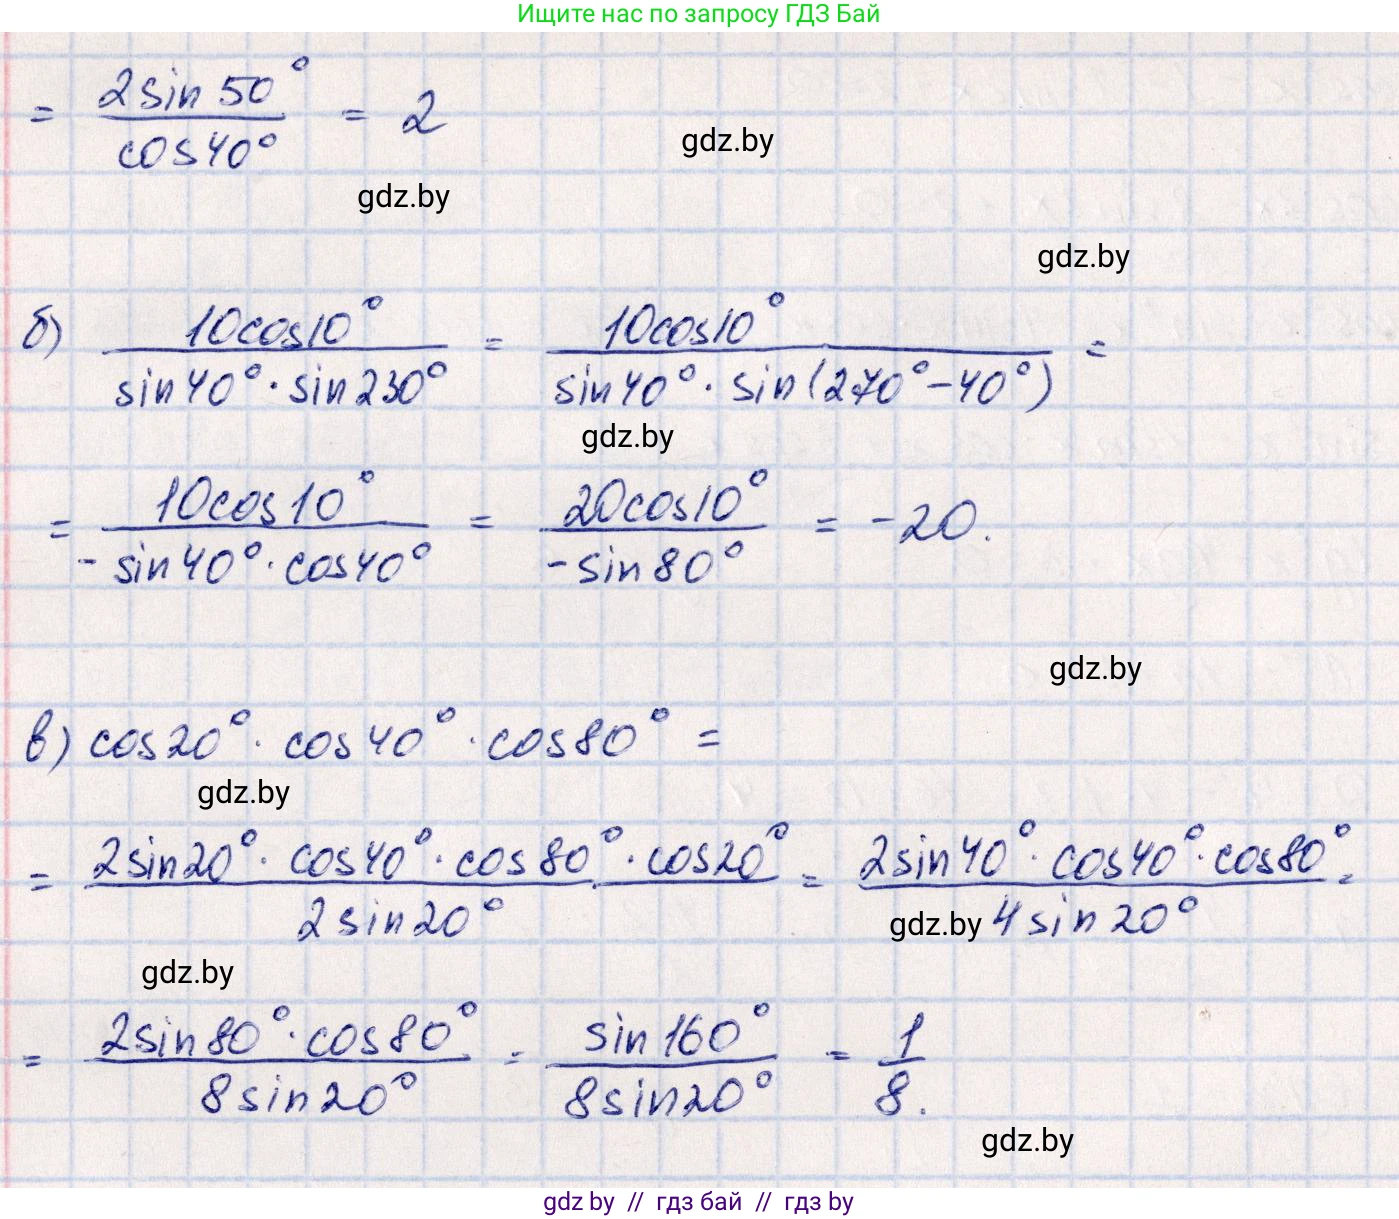 Ищите нас по запросу ГДЗ Бай
= 2sin50° / cos40° = 2
gdz.by
gdz.by
gdz.by
б) 10cos10° / sin40° · sin230° = 10cos10° / sin40° · sin(270° - 40°) =
gdz.by
= 10cos10° / - sin40° · cos40° = 20cos10° / - sin80° = - 20.
gdz.by
в) cos20° · cos40° · cos80° =
gdz.by
= 2sin20° · cos40° · cos80° · cos20° / 2sin20° = 2sin40° · cos40° · cos80° / 4sin20° =
gdz.by
gdz.by
= 2sin80° · cos80° / 8sin20° = sin160° / 8sin20° = 1 / 8.
gdz.by
gdz by // гдз бай // гдз by